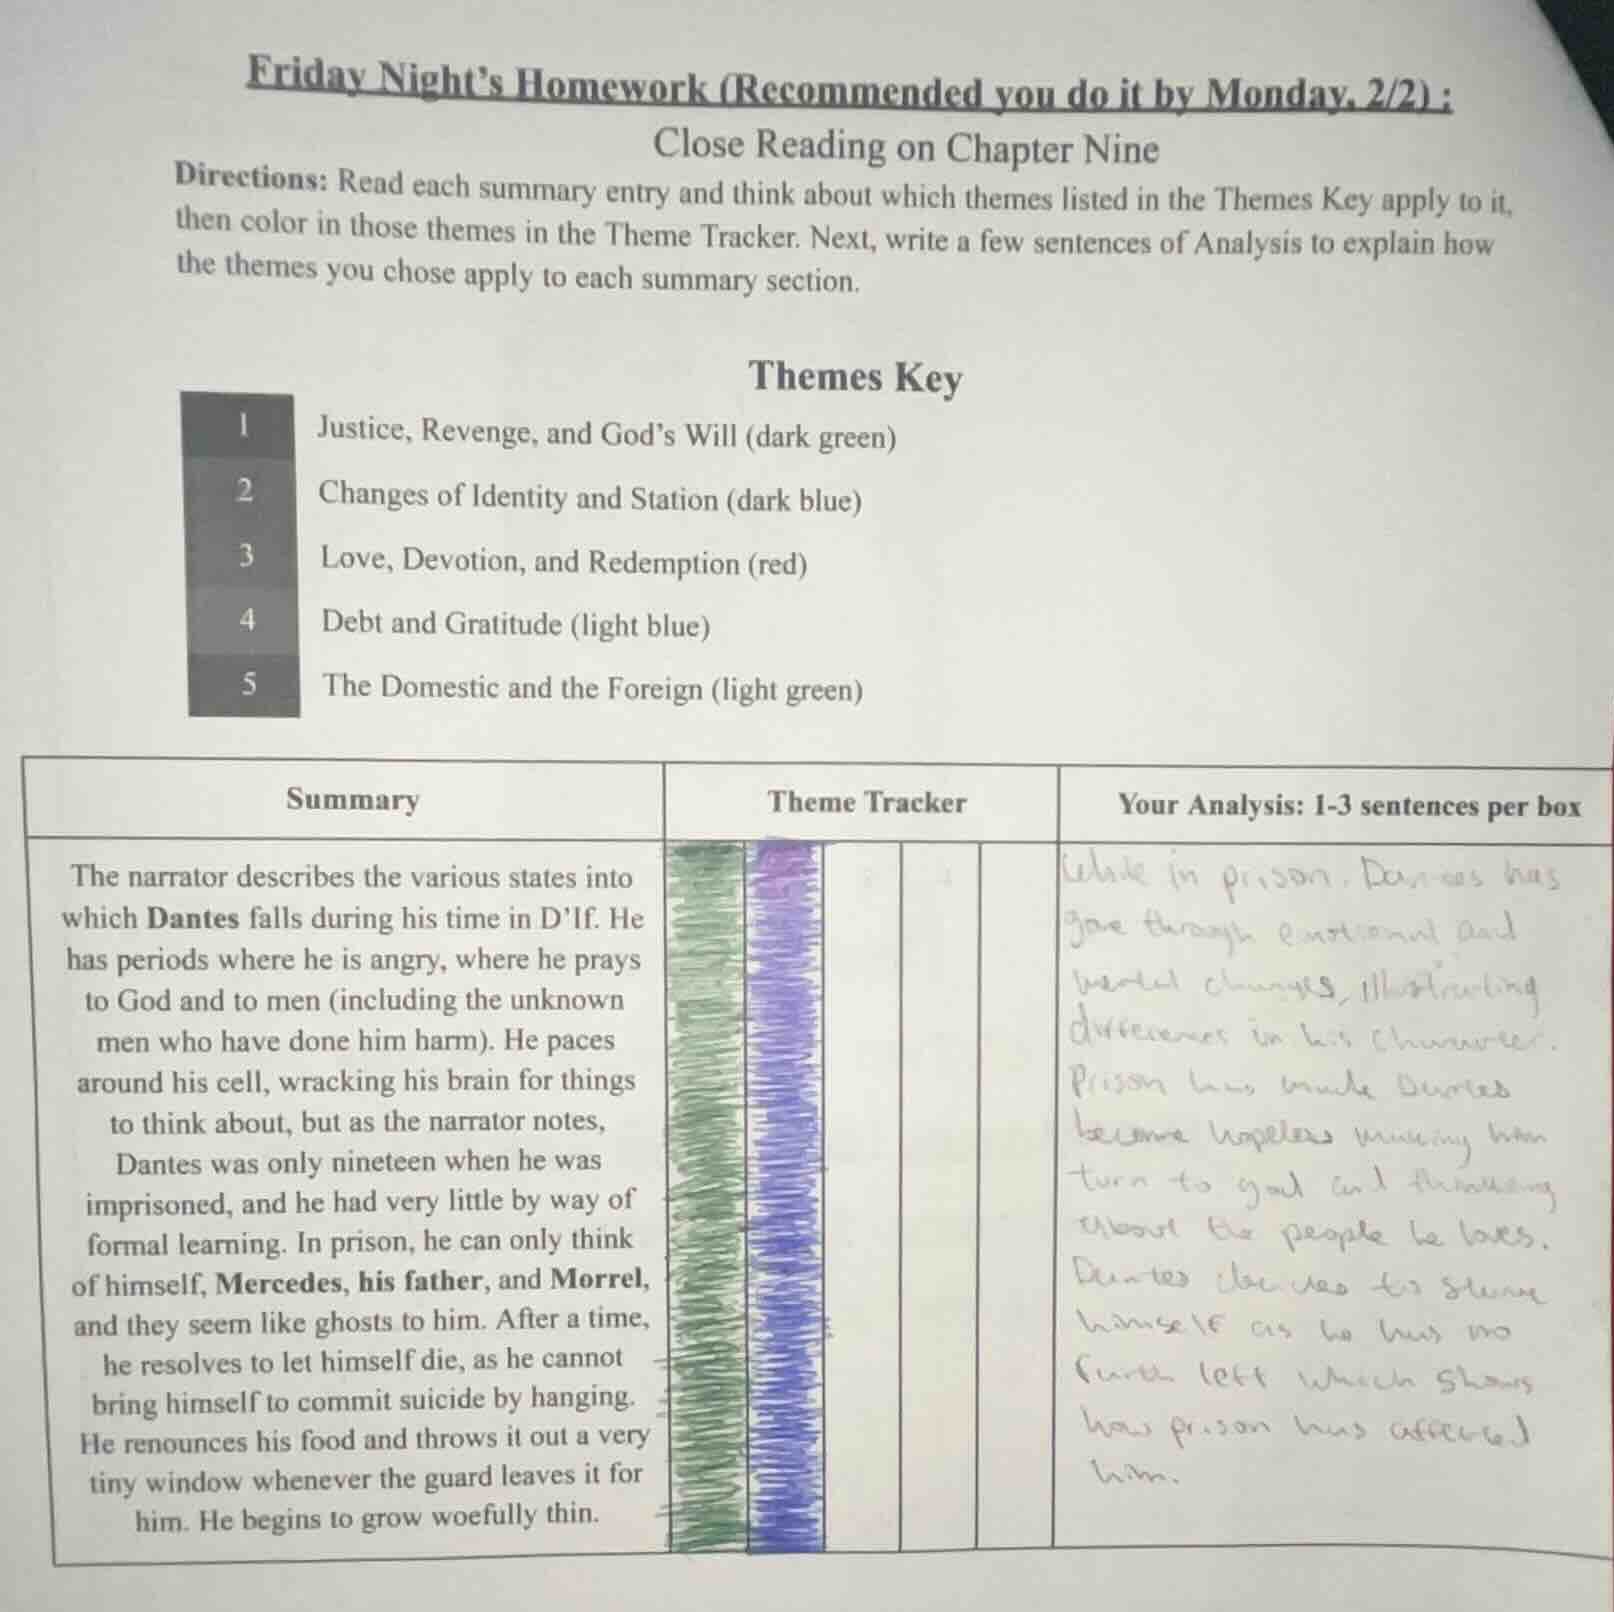 Friday Night's Homework (Recommended you do it by Monday, 2/2) :
Close Reading on Chapter Nine
Directions: Read each summary entry and think about which themes listed in the Themes Key apply to it,
then color in those themes in the Theme Tracker. Next, write a few sentences of Analysis to explain how
the themes you chose apply to each summary section.
Themes Key
1 Justice, Revenge, and God's Will (dark green)
2 Changes of Identity and Station (dark blue)
3 Love, Devotion, and Redemption (red)
4 Debt and Gratitude (light blue)
5 The Domestic and the Foreign (light green)
Summary
Theme Tracker
Your Analysis: 1-3 sentences per box
The narrator describes the various states into
which Dantes falls during his time in D'If. He
has periods where he is angry, where he prays
to God and to men (including the unknown
men who have done him harm). He paces
around his cell, wracking his brain for things
to think about, but as the narrator notes,
Dantes was only nineteen when he was
imprisoned, and he had very little by way of
formal learning. In prison, he can only think
of himself, Mercedes, his father, and Morrel,
and they seem like ghosts to him. After a time,
he resolves to let himself die, as he cannot
bring himself to commit suicide by hanging.
He renounces his food and throws it out a very
tiny window whenever the guard leaves it for
him. He begins to grow woefully thin.
While in prison, Dantes has
gone through emotional and
mental changes, illustrating
differences in his character.
Prison has made Dantes
become hopeless making him
turn to god and thinking
about the people he loves.
Dantes decides to starve
himself as he has no
faith left which shows
how prison has affected
him.